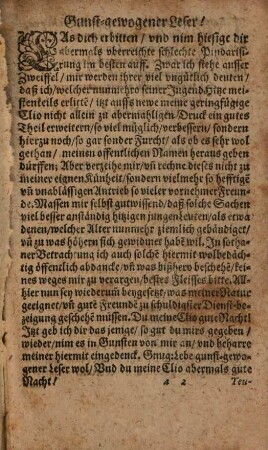 Gunst-gewogener Leser!
LAs dich erbitten / und nim hiesige dir
abermals uberreichte schlechte Pindarisi-
rung im besten auff. Zwar ich stehe ausser
Zweiffel / mir werden ihrer viel ungütlich deuten /
daß ich / welcher nunmehro seiner Jugend Hitze mei-
stenteils erlitte / itzt auffs newe meine geringfügige
Clio nicht allein zu abermahligen Druck ein gutes
Theil erweitern / so viel müglich / verbessern / sondern
hierzu noch / so gar sonder Furcht / als ob es sehr wol
gethan / meinen öffentlichen Namen heraus geben
dürffen; Aber verzeihe mir / uñ rechne dieses nicht zu
meiner eignen Künheit / sondern vielmehr so hefftigē
uñ unablässigen Antrieb so vieler vornemer Freun-
de. Massen mir selbst gutwissend / daß solche Sachen
viel besser anständig hitzigen jungen Leuten / als etwa
denen / welcher Alter nunmehr ziemlich gebändiget /
uñ zu was höhern sich gewidmet habē wil. In sotha-
ner Betrachtung ich auch solche hiermit wolbedäch-
tig öffentlich abdancke / uñ was bißhero beschehē / kei-
nes weges mir zu verargen / bestes Fleisses bitte. All-
hier nun sey wiederum beygesetzt / was meiner Natur
geeignet / uñ gute Freunde zu schuldigster Dienst-be-
zeigung geschehē müssen. Du meine Clio gute Nacht!
Itzt geb ich dir das jenige / so gut du mirs gegeben /
wieder / nim es in Gunsten von mir an / und beharre
meiner hiermit eingedenck. Gnug: Lebe gunst-gewo-
gener Leser wol / Und du meine Clio abermals gute
Nacht!
a 2 Teu-